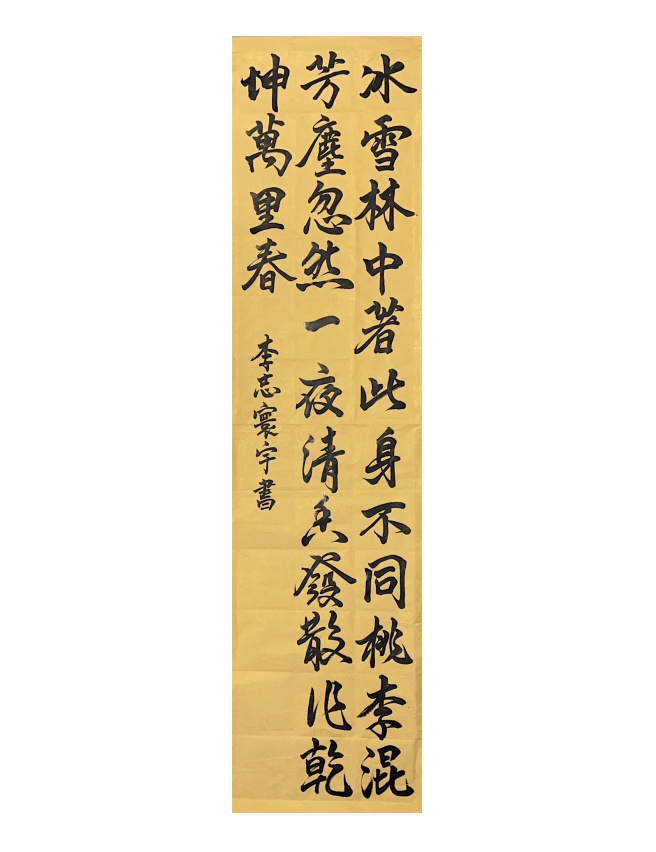 冰雪林中著此身不同桃李混
芳塵忽然一夜清香發散作乾
坤萬里春
李志寰宇書